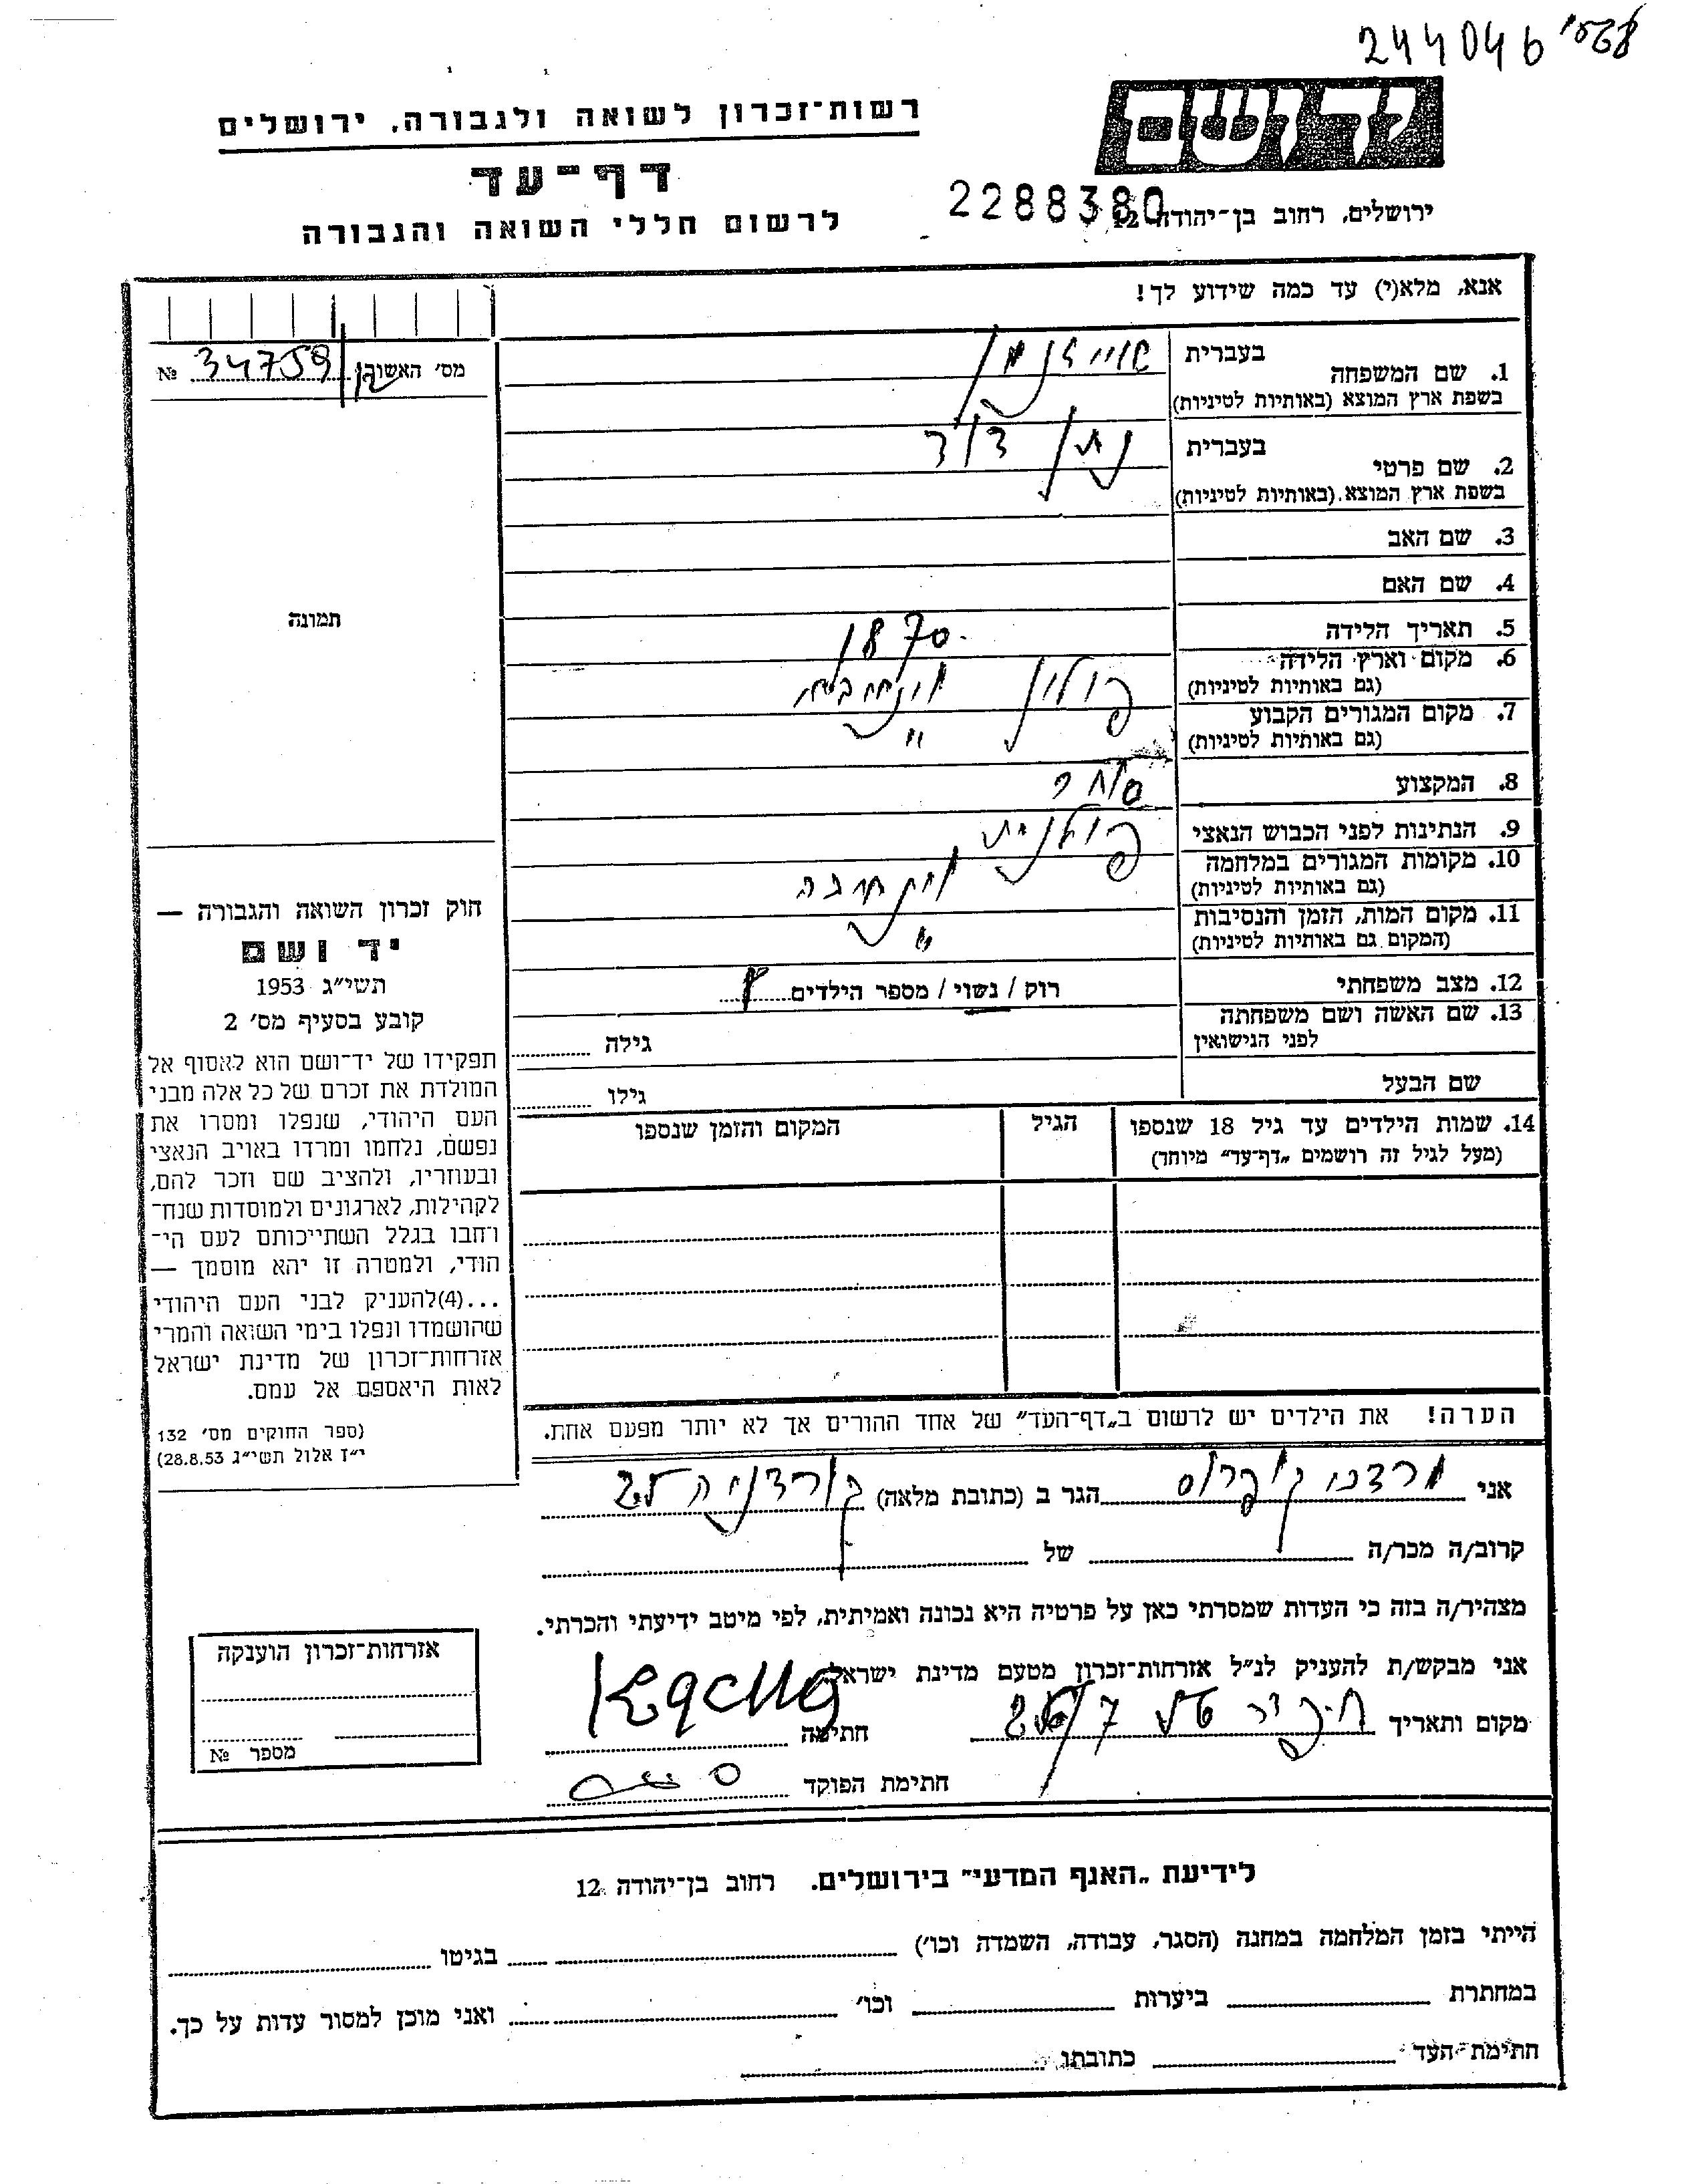 244046
יד ושם
רשות־זכרון לשואה ולגבורה, ירושלים
דף־עד
לרשום חללי השואה והגבורה
2288380
ירושלים, רחוב בן־יהודה 12
אנא, מלא(י) עד כמה שידוע לך!
מס׳ האשורה № 34759
1. שם המשפחה
בעברית
בשפת ארץ המוצא (באותיות לטיניות)
2. שם פרטי
בעברית נתן דוד
בשפת ארץ המוצא (באותיות לטיניות)
3. שם האב
4. שם האם
5. תאריך הלידה 1870
6. מקום וארץ הלידה פולין
(גם באותיות לטיניות)
7. מקום המגורים הקבוע "
(גם באותיות לטיניות)
8. המקצוע סוחר
9. הנתינות לפני הכבוש הנאצי פולנית
10. מקומות המגורים במלחמה
(גם באותיות לטיניות)
11. מקום המות, הזמן והנסיבות "
(המקום גם באותיות לטיניות)
12. מצב משפחתי רוק / נשוי / מספר הילדים
13. שם האשה ושם משפחתה
לפני הנישואין
גילה
שם הבעל
גילו
14. שמות הילדים עד גיל 18 שנספו
(מעל לגיל זה רושמים „דף־עד” מיוחד)
הגיל
המקום והזמן שנספו
הערה! את הילדים יש לרשום ב„דף־העד” של אחד ההורים אך לא יותר מפעם אחת.
תמונה
חוק זכרון השואה והגבורה —
יד ושם
תשי״ג 1953
קובע בסעיף מס׳ 2
תפקידו של יד־ושם הוא לאסוף אל
המולדת את זכרם של כל אלה מבני
העם היהודי, שנפלו ומסרו את
נפשם, נלחמו ומרדו באויב הנאצי
ובעוזריו, ולהציב שם וזכר להם,
לקהילות, לארגונים ולמוסדות שנח־
רחבו בגלל השתייכותם לעם הי־
הודי, ולמטרה זו יהא מוסמך —
...(4)להעניק לבני העם היהודי
שהושמדו ונפלו בימי השואה והמרי
אזרחות־זכרון של מדינת ישראל
לאות היאספם אל עמם.
(ספר החוקים מס׳ 132
י״ז אלול תשי״ג 28.8.53)
אני הגר ב (כתובת מלאה)
קרוב/ה מכר/ה של
מצהיר/ה בזה כי העדות שמסרתי כאן על פרטיה היא נכונה ואמיתית, לפי מיטב ידיעתי והכרתי.
אני מבקש/ת להעניק לנ״ל אזרחות־זכרון מטעם מדינת ישראל
מקום ותאריך
חתימה
חתימת הפוקד
אזרחות־זכרון הוענקה
מספר №
לידיעת „האגף המדעי” בירושלים. רחוב בן־יהודה 12
הייתי בזמן המלחמה במחנה (הסגר, עבודה, השמדה וכו׳) בגיטו
במחתרת ביערות וכו׳ ואני מוכן למסור עדות על כך.
חתימת העד כתובתו